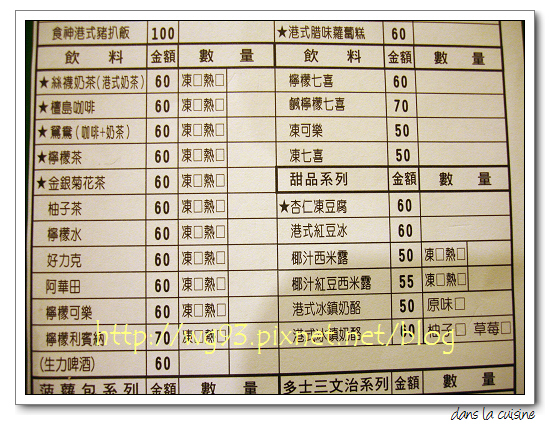 食神港式豬扒飯 100 ★港式腊味蘿蔔糕 60
飲料 金額 數量 飲料 金額 數量
★絲襪奶茶(港式奶茶) 60 凍□熱□ 檸檬七喜 60
★檀島咖啡 60 凍□熱□ 鹹檸檬七喜 70
★鴛鴦(咖啡+奶茶) 60 凍□熱□ 凍可樂 50
★檸檬茶 60 凍□熱□ 凍七喜 50
★金銀菊花茶 60 凍□熱□ 甜品系列 金額 數量
柚子茶 60 凍□熱□ ★杏仁凍豆腐 60
檸檬水 60 凍□熱□ 港式紅豆冰 60
好力克 60 凍□熱□ 椰汁西米露 50 凍□熱□
阿華田 60 凍□熱□ 椰汁紅豆西米露 55 凍□熱□
檸檬可樂 60 凍□熱□ 港式冰鎮奶酪 50 原味□
檸檬利賓納 70 凍□熱□ 港式冰鎮奶酪 60 柚子□ 草莓□
(生力啤酒) 60
菠蘿包系列 金額 數量 多士三文治系列 金額 數量
dans la cuisine